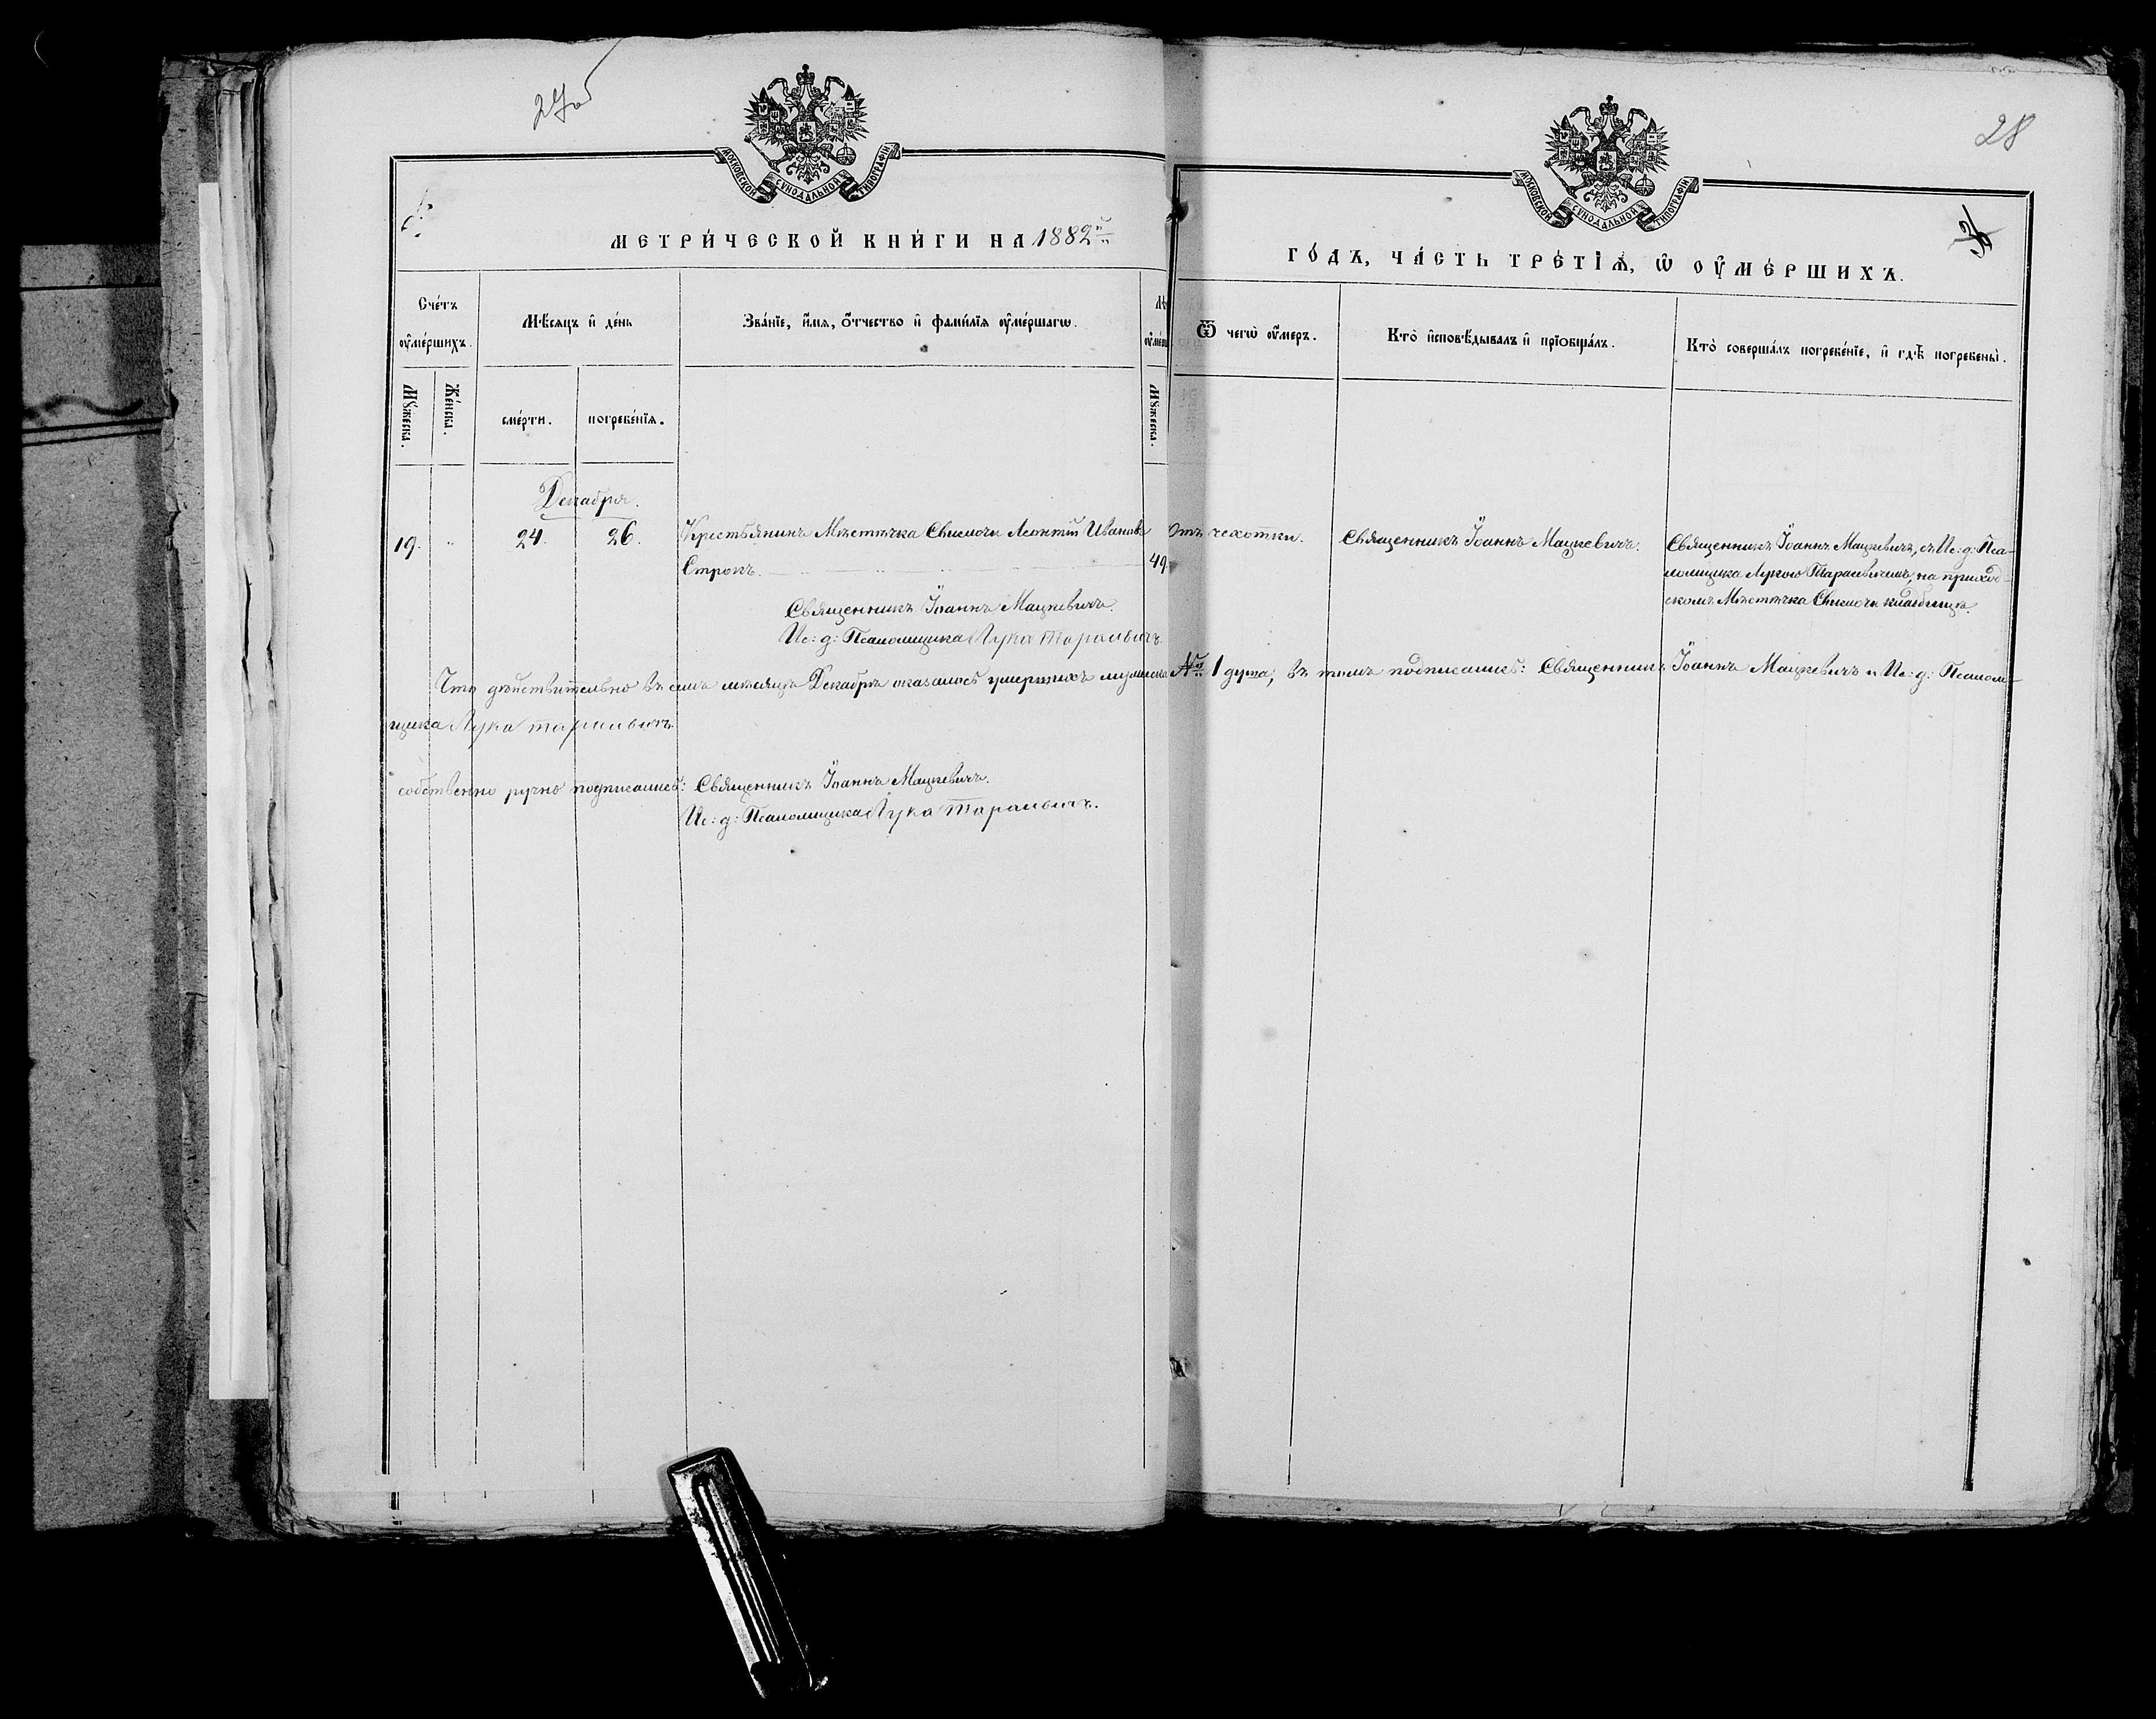 27об
28
МОСКОВСКОЙ СѴНОДАЛЬНОЙ ТИПОГРАФІИ
МОСКОВСКОЙ СѴНОДАЛЬНОЙ ТИПОГРАФІИ
МЕТРИ́ЧЕСКОЙ КНИ́ГИ НА 1882й
ГО́ДЪ, ЧА́СТЬ ТРЕ́ТІѦ, Ѡ ОУ҆МЕ́РШИХЪ.
Сче́тъ оу҆ме́ршихъ.
Мѣ́сяцъ и҆ де́нь
Зва́нїе, и҆́мѧ, ѻ҆́тчество и҆ фами́лїѧ оу҆ме́ршагѡ.
Ѿ чегѡ̀ оу҆́меръ.
Кто̀ и҆сповѣ́дывалъ и҆ прїобща́лъ.
Кто̀ соверша́лъ погребе́нїе, и҆ гдѣ̀ погребены̀.
Мꙋ́жеска.
Же́нска.
сме́рти.
погребе́нїѧ.
Мꙋ́жеска.
Декабря.
19. „ 24. 26. Крестьянинъ Мѣстечка Свислочи Леонтій Ивановъ
Строкъ. 49.
Отъ чехотки.
Священникъ Іоаннъ Мацкевичъ.
Священникъ Іоаннъ Мацкевичъ, съ Ис: д: Пса-
ломщика Лукою Тарасевичемъ, на приход-
скомъ Мѣстечка Свислочи кладбищѣ.
Священникъ Іоаннъ Мацкевичъ.
Ис: д: Псаломщика Лука Тарасевичъ.
Что дѣйствительно въ семъ мѣсяцѣ Декабрѣ оказалось умершихъ мужеска № 1 душа, въ томъ подписались: Священникъ Іоаннъ Мацкевичъ и Ис: д: Псалом-
щика Лука Тарасевичъ
собственно ручно подписались: Священникъ Іоаннъ Мацкевичъ.
Ис: д: Псаломщика Лука Тарасевичъ.